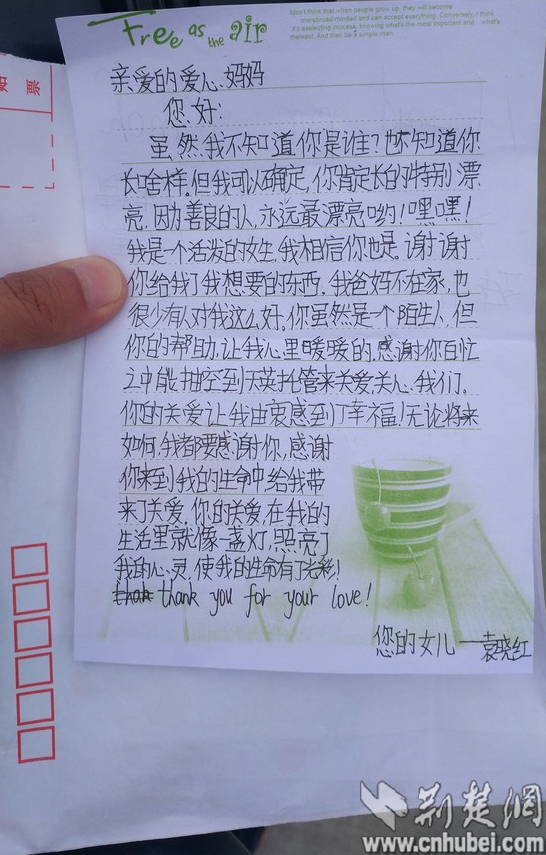 Free as the air
I don't think that when people grow up, they will become
mensbroad-minded and can accept everything. Conversely, I think
it's aselecting process, knowing what's the most important and what's
theleast. And then be a simple man.
票
亲爱的爱心妈妈
您好:
虽然我不知道你是谁?也不知道你
长啥样。但我可以确定,你肯定长的特别漂
亮,因为善良的人,永远最漂亮哟!嘿嘿!
我是一个活发的女生,我相信你也是。谢谢
你给我了我想要的东西。我爸妈不在家,也
很少有人对我这么好。你虽然是一个陌生人,但
你的帮助,让我心里暖暖的,感谢你百忙
之中能抽空到天英托管来关爱,关心我们。
你的关爱让我由衷感到了幸福!无论将来
如何,我都要感谢你,感谢
你来到我的生命中给我带
来了关爱,你的关爱,在我的
生活里就像一盏灯,照亮了
我的心灵,使我的生命有了光彩!
thank you for your love!
您的女儿——袁晓红
荆楚网
www.cnhubei.com